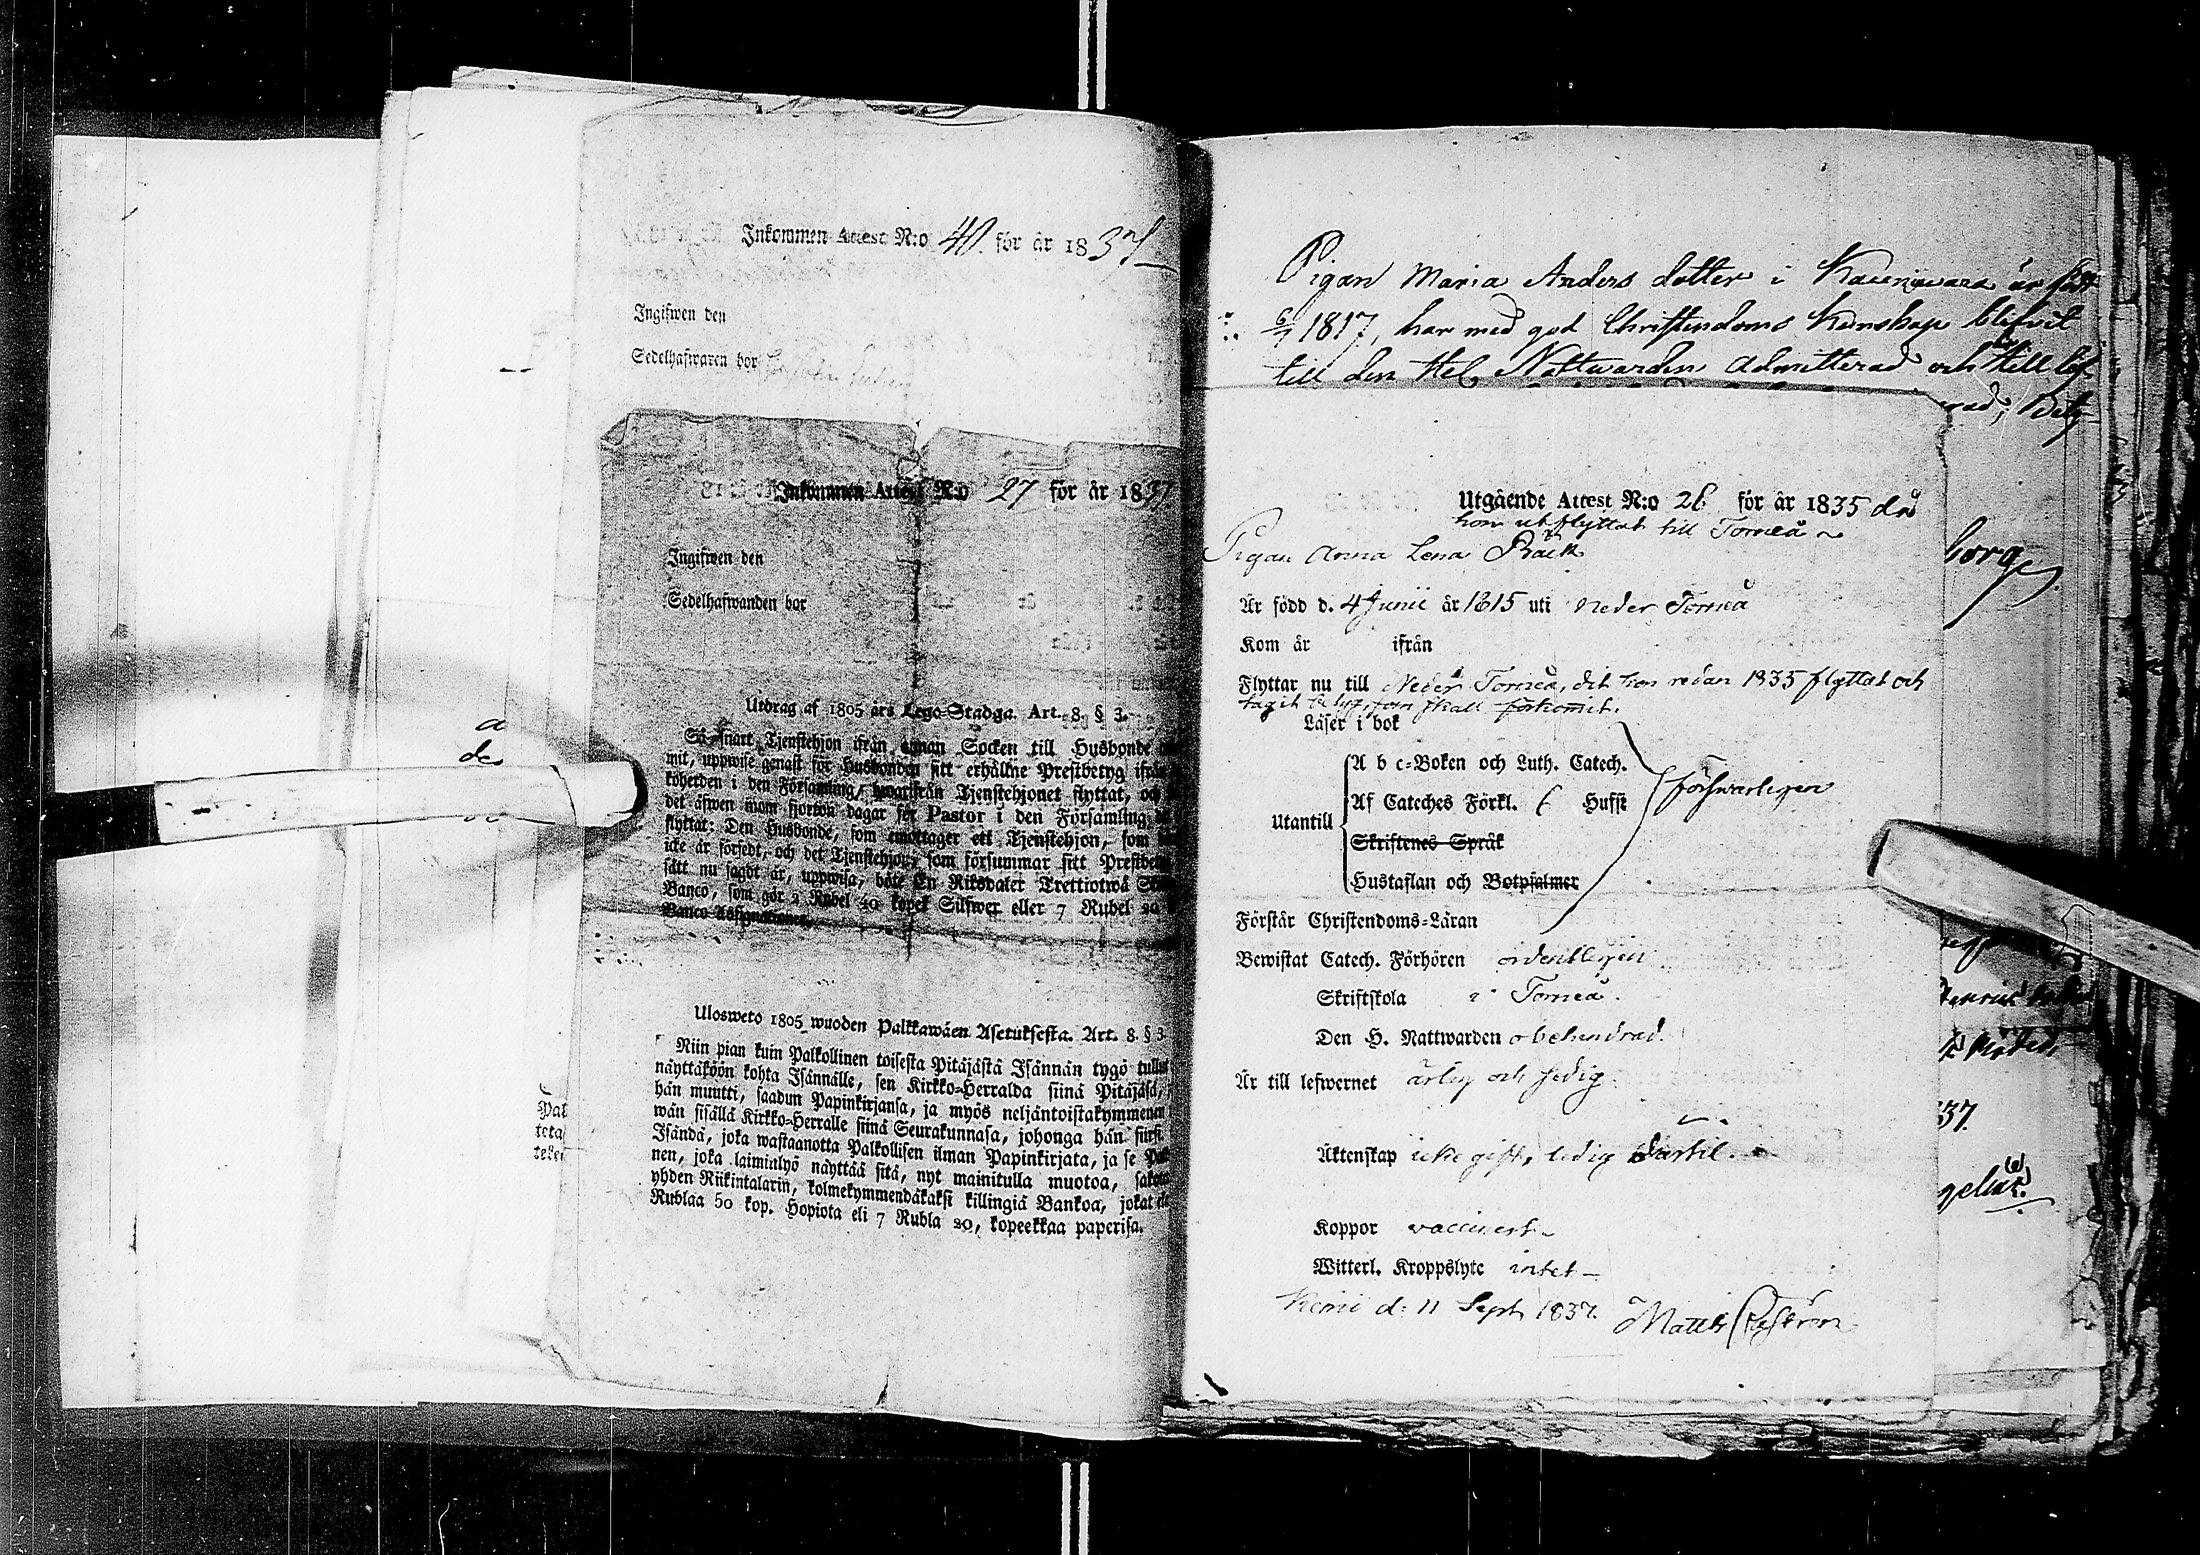 Inkommen Attest N:o 40. för år 1837
Ingifwen den
Sedelhafwaren bor
Inkommen Attest N:o 27 för år 1837
Ingifwen den
Sedelhafwanden bor
Utdrag af 1805 års Lego-Stadga. Art. 8. § 3.
Så snart Tjenstehjon ifrån annan Socken till Husbonde
mit, uppwise genast för Husbonden sitt erhållne Prestbetyg ifrån
köherden i den Församling, hwarifrån Tjenstehjonet flyttat, och
det äfwen inom fjorton dagar för Pastor i den Församling
flyttat: Den Husbonde, som emottager ett Tjenstehjon, som
icke är försedt, och det Tjenstehjon, som försummar sitt Prestbe
sätt nu sagdt är, uppwisa, böte En Riksdaler Trettiotwå
Banco, som gör 2 Rubel 40 kopek Silfwer eller 7 Rubel 20
Banco Assignationer.
Ulosweto 1805 wuoden Palkkawäen Asetuksesta. Art. 8. § 3
Niin pian kuin Palkollinen toisesta Pitäjästä Isännän tygö tullut
näyttäköön kohta Isännälle, sen Kirkko-Herralda siinä Pitäjäsä,
hän muutti, saadun Papinkirjansa, ja myös neljäntoistakymmenen
wän sisällä Kirkko-Herralle siinä Seurakunnasa, johonga hän siirsi
Isändä, joka wastaanotta Palkollisen ilman Papinkirjata, ja se
nen, joka laiminlyö näyttää sitä, nyt mainitulla muotoa,
yhden Riikintalarin, kolmekymmendäkaksi killingiä Bankoa, jokat
Rublaa 50 kop. Hopiota eli 7 Rubla 20, kopeekkaa paperisa.
a
de
Pal
tota
Pigan Maria Anders dotter i är född
1817, har med god Christendoms Kunskap blifvit
till den Hel. Nattwarden admitterad och till lef
rad; Bety-
borg
37.
Utgående Attest N:o 26 för år 1835 då
hon utflyttat till Torneå
Pigan Anna Lena Bäck
Är född d. 4 Junii år 1815 uti Neder Torneå
Kom år ifrån
Flyttar nu till Neder Torneå, dit hon redan 1835 flyttat och
tagit betyg, som skall förkommit.
Läser i bok
A b c-Boken och Luth. Catech.
Af Cateches Förkl. 6 Hufst
försvarligen
Utantill
Skriftenes Språk
Hustaflan och Botpsalmer
Förstår Christendoms-Läran
Bewistat Catech. Förhören ordentligen
Skriftskola i Torneå.
Den H. Nattwarden obehindrad.
Är till lefwernet ärlig och sedig
Äktenskap icke gift, ledig dertil.
Koppor vaccinert
Witterl. Kroppslyte intet
Kemi d. 11 Sept 1837. Matths